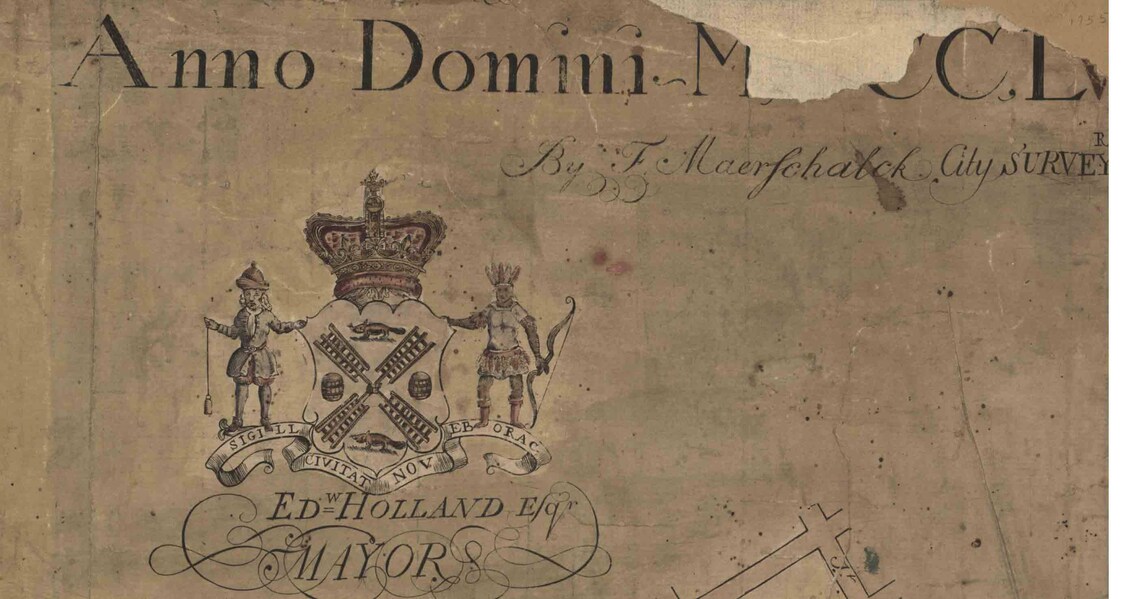 1755
Anno Domini M, CC, LV
By F. Maerschalck City SURVEY
R
SIGILL CIVITAT NOV EB ORAC
EDW HOLLAND Esqr
MAYOR